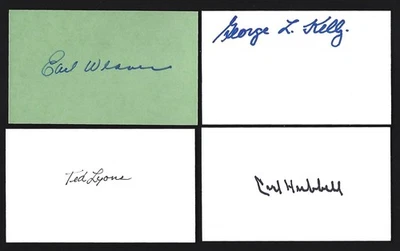 Earl Weaver
George L. Kelly.
Ted Lyons
Carl Hubbell